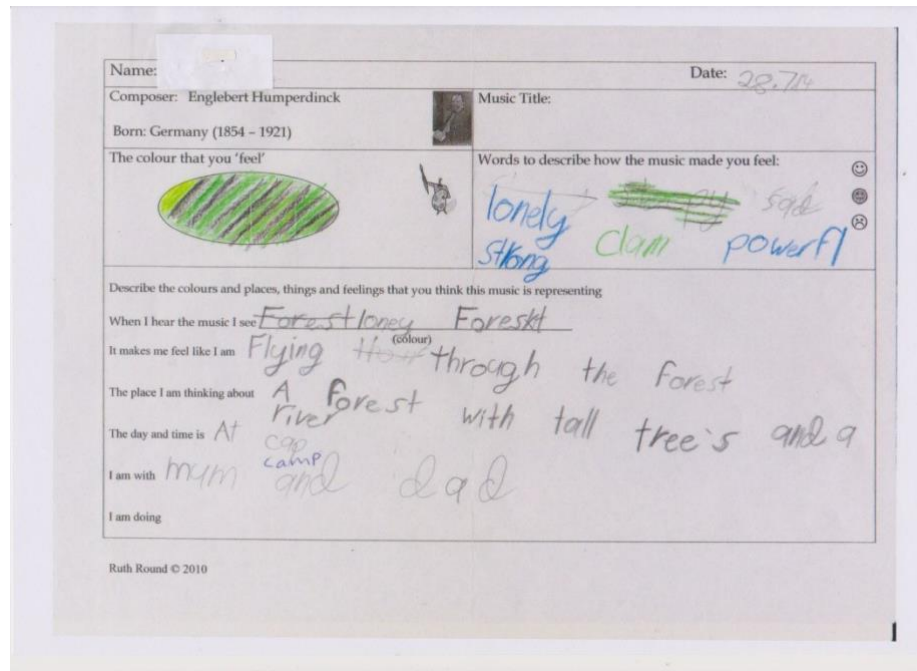 Name:
Date: 28.7.14
Composer: Englebert Humperdinck
Born: Germany (1854 – 1921)
Music Title:
The colour that you 'feel'
Words to describe how the music made you feel:
sad
lonely
clam
powerfl
strong
Describe the colours and places, things and feelings that you think this music is representing
When I hear the music I see Forest loney Foreskt
(colour)
It makes me feel like I am Flying through the forest
The place I am thinking about A forest with tall tree's and a
river
The day and time is At cap
camp
I am with mum and dad
I am doing
Ruth Round © 2010